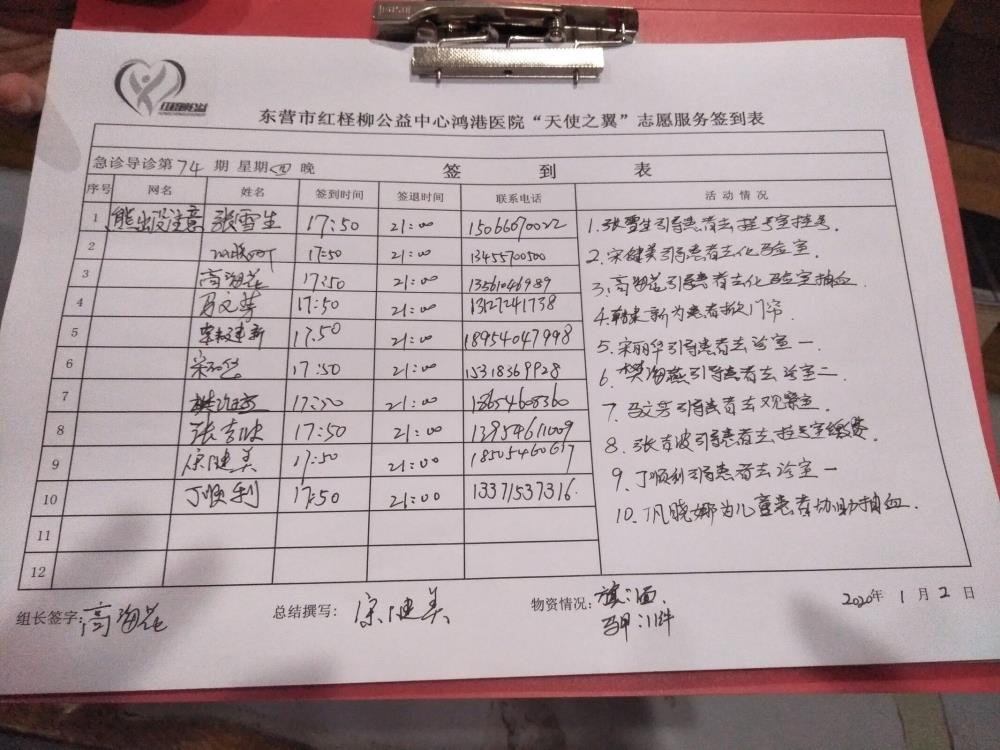 东营市红柽柳公益中心鸿港医院“天使之翼”志愿服务签到表
急诊导诊第74期 星期四晚 签到表
序号 网名 姓名 签到时间 签退时间 联系电话 活动情况
1 熊出没注意 张雪生 17:50 21:00 15066670022
2 17:50 21:00 13455700500
3 高海花 17:50 21:00 13561046989
4 马文芳 17:50 21:00 13127241738
5 17:50 21:00 18954047998
6 17:50 21:00 15318369928
7 17:50 21:00 18654608360
8 张吉波 17:50 21:00 13954611009
9 宋健美 17:50 21:00 18505460617
10 丁顺利 17:50 21:00 13371537316
11
12
1.张雪生引导患者去挂号室挂号.
2.宋健美引导患者去化验室.
3.高海花引导患者去化验室抽血.
4.韩建新为患者掀门帘.
5.宋丽华引导患者去诊室一.
6.樊海燕引导患者去诊室二.
7.马文芳引导患者去观察室.
8.张吉波引导患者去挂号室缴费.
9.丁顺利引导患者去诊室一
10.巩晓娜为儿童患者协助抽血.
组长签字:高海花 总结撰写:宋健美 物资情况:旗:1面.
马甲:11件
2020年1月2日